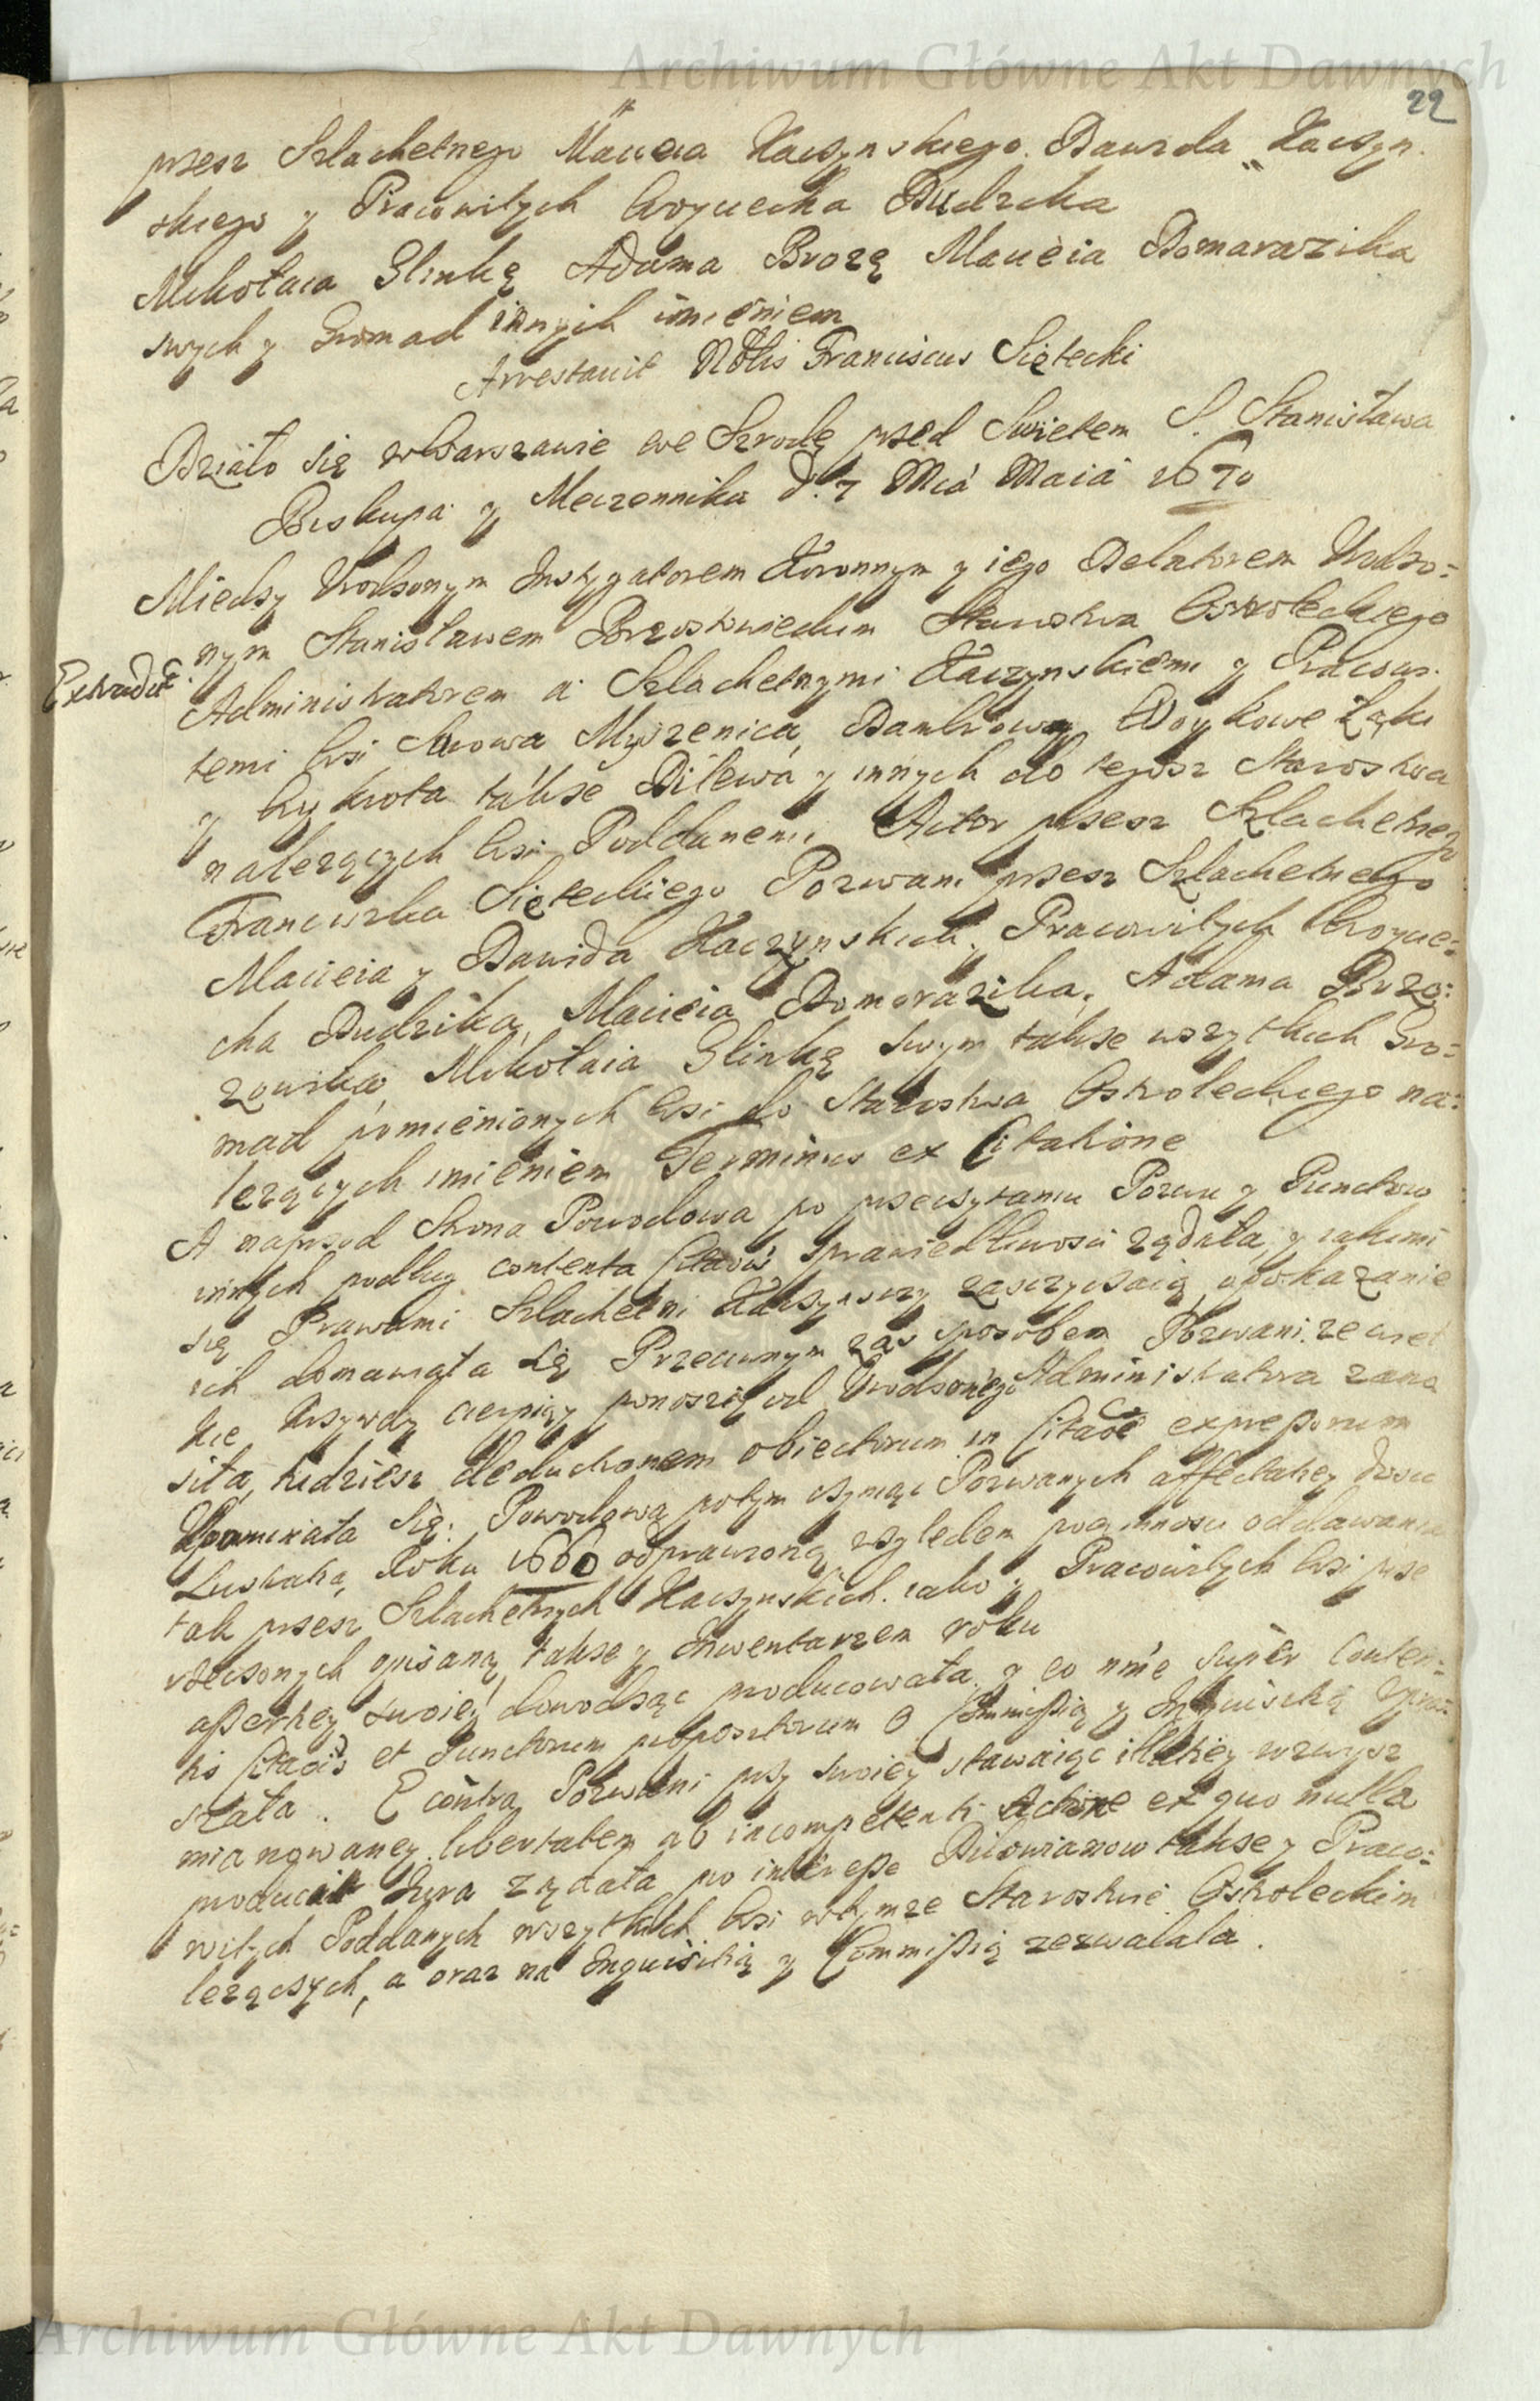 Archiwum Główne Akt Dawnych
22
przesz Szlachetnego Macieia Kaczynskiego Dawida Kaczyn.
skiego y Pracowitych Woyciecha Dudzika
Mikołaia Glinkę Adama Brozę Macieia Domarazika
swych y Gromad innych imieniem
Arrestavit Nblis Franciscus Siętecki
Działo się w Warszawie we Szrodę przed Swietem S. Stanisława
Biskupa y Meczennika d. 7 Mca Maia 1670
Miedzy Urodzonym Instygatorem Koronnym y iego Delatorem Urodzo=
nym Stanisławem Starostwa Ostroleckiego
Extradit
Administratorem a Szlachetnymi Kaczynskiemi y Pracowi.
temi Wsi Myszenica, Dambrowy, Woykowe Łąki
y Wykrota takze Dilewa y innych do tegosz Starostwa
nalezących Wsi Poddanemi Actor przesz Szlachetnego
Franciszka Sięteckiego Pozwani przesz Szlachetnego
Macieia y Dawida Kaczynskich, Pracowitych Woycie=
cha Dudzika, Macieia Domarazika, Adama Brzo=
zowika, Mikołaia Glinkę swym takze wszytkich Gro=
mad pomienionych Wsi do Starostwa Ostroleckiego na=
lezących imieniem Terminus ex Citatione
A naprzod Strona Powodowa po przeczytaniu Pozwu y Punctow
innych podług contenta Citaois sprawiedliwosci ządała, y iakiemi
się Prawami Szlachetni Kaczynscy zasczyczaią, o pokazanie
ich domawiała się Przeciwnym zas sposobem Pozwani
kie krzywdy cierpiąy ponoszą od Urodzonego Administratora zano
siła, tudziesz deductionem obiectorum in Citaoe expressorum
Upominała się: Powodowa potym czyniąc Pozwanych affectatiey dosic
Lustratią Roku 1660 odprawioną względem powinnosci oddawania
tak przesz Szlachetnych Kaczynskich iako y Pracowitych Wsi prze
rzeczonych opisaną, takze y Inwentarzem roku
assertiey swoiey dowodząc producowała, y eo nne super Conten=
tis Citaois et Punctorum propositorum o Commissią y Inquisitią
szała. E contra Pozwani przy swoiey stawaiąc illatiey wzwysz
mianowaney, libertatem ab incompetenti Actore ex quo nulla
producit Iura ządała po interesse Dilowianow takze y Praco=
witych Poddanych wszytkich Wsi w tymze Starostwie Ostroleckim
lezączych, a oraz na Inquisitią y Commissią zezwalała.
Archiwum Główne Akt Dawnych